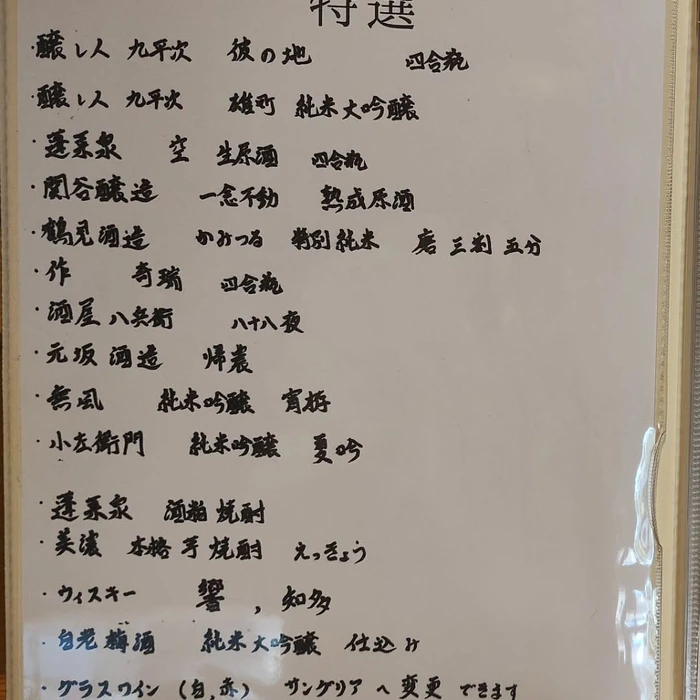 特選
・醸し人 九平次 彼の地 四合瓶
・醸し人 九平次 雄町 純米大吟醸
・蓬莱泉 空 生原酒 四合瓶
・関谷醸造 一念不動 熟成原酒
・鶴見酒造 かみつる 特別純米 磨 三割 五分
・作 奇瑞 四合瓶
・酒屋八兵衛 八十八夜
・元坂酒造 帰農
・無風 純米吟醸 宵搾
・小左衛門 純米吟醸 夏吟
・蓬莱泉 酒粕焼酎
・美濃 本格芋焼酎 えっきょう
・ウィスキー 響 , 知多
・白老梅酒 純米大吟醸 仕込み
・グラスワイン (白,赤) サングリア へ 変更 できます